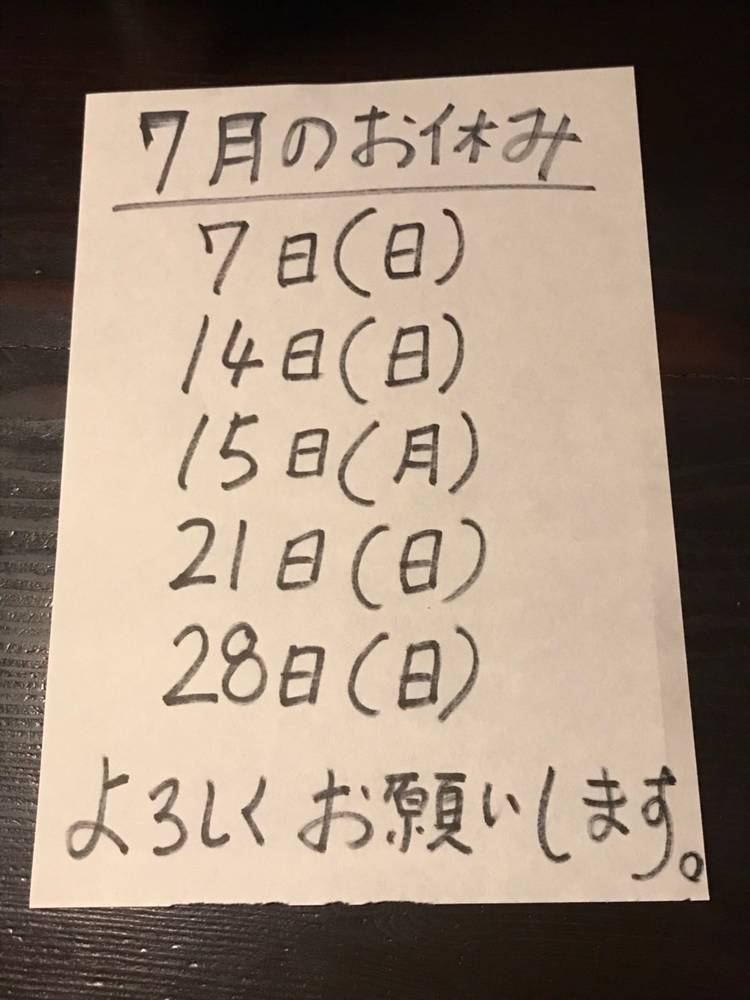 7月のお休み
7日(日)
14日(日)
15日(月)
21日(日)
28日(日)
よろしくお願いします。